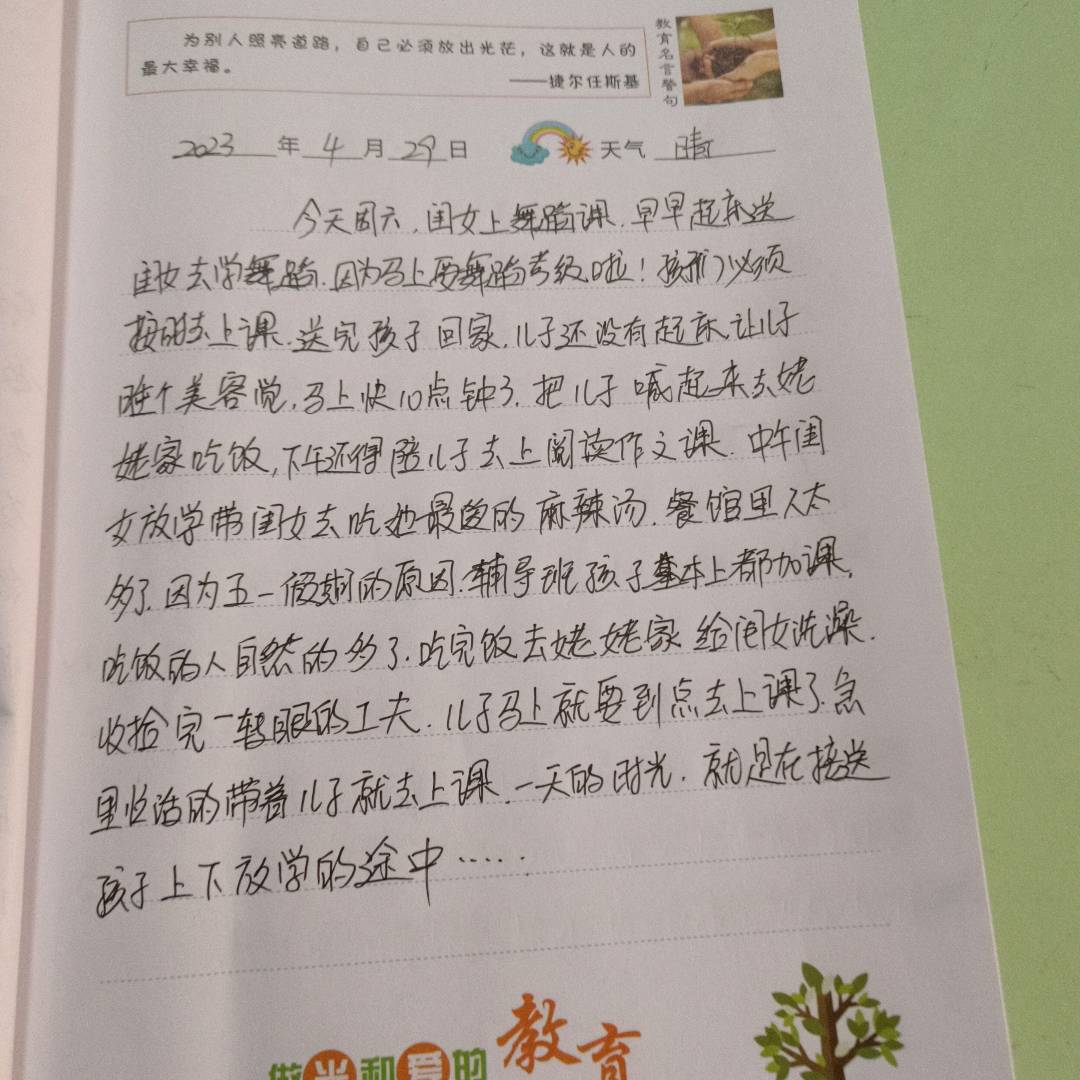 为别人照亮道路，自己必须放出光芒，这就是人的
最大幸福。
——捷尔任斯基
教育名言警句
2023年4月29日 天气 晴
今天周六，闺女上舞蹈课，早早起床送
闺女去学舞蹈.因为马上要舞蹈考级啦！孩们必须
按时去上课.送完孩子回家.儿子还没有起床,让儿子
睡个美容觉.马上快10点钟了.把儿子喊起来去姥
姥家吃饭,下午还得陪儿子去上阅读作文课.中午闺
女放学带闺女去吃她最爱的麻辣汤.餐馆里人太
多了.因为五一假期的原因.辅导班孩子基本上都加课,
吃饭的人自然的多了.吃完饭去姥姥家给闺女洗澡.
收拾完一转眼的工夫.儿子马上就要到点去上课了.急
里忙活的带着儿子就去上课.一天的时光.就是在接送
孩子上下放学的途中·····.
做光和爱的教育